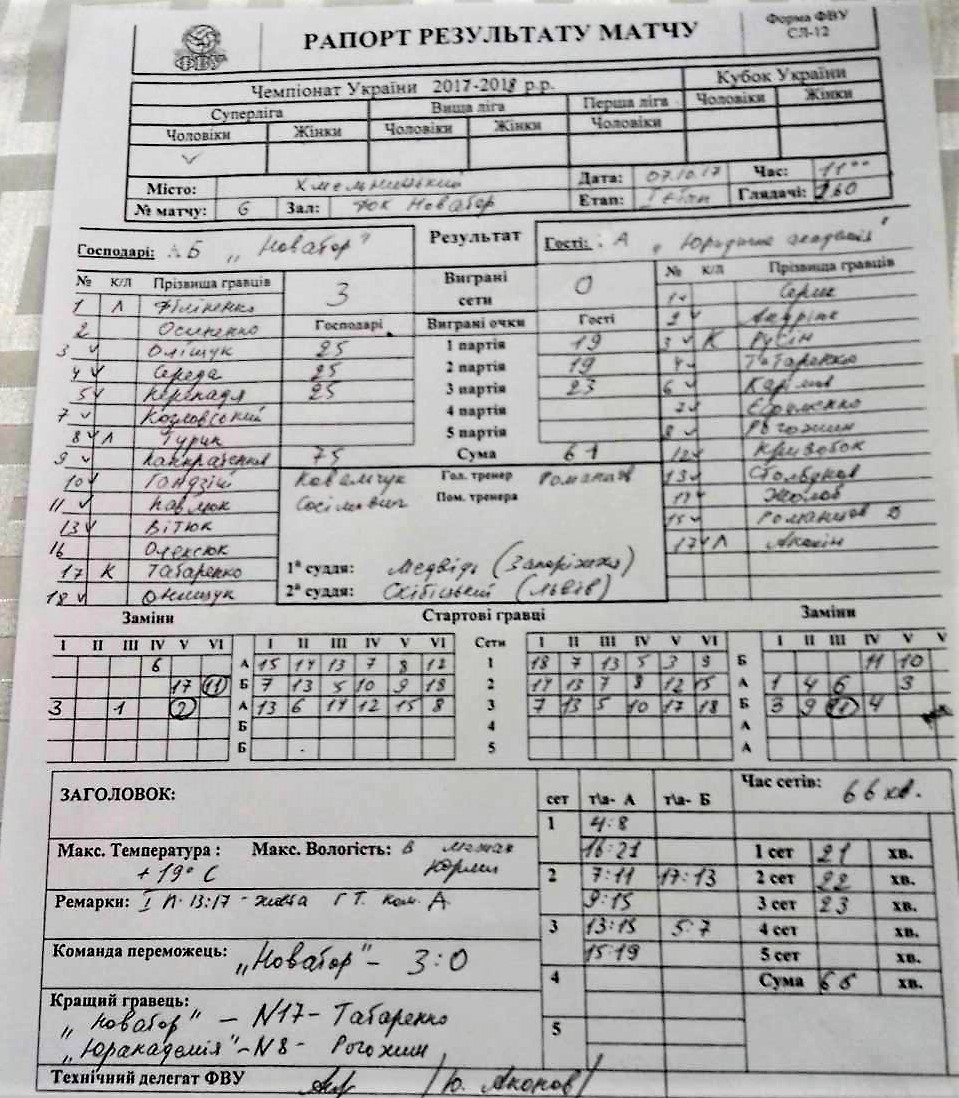 ФВУ
РАПОРТ РЕЗУЛЬТАТУ МАТЧУ
Форма ФВУ
СЛ-12
Чемпіонат України 2017-2018 р.р.
Кубок України
Суперліга Вища ліга Перша ліга Чоловіки Жінки
Чоловіки Жінки Чоловіки Жінки Чоловіки
Місто: Хмельницький Дата: 07.10.17 Час: 11⁰⁰
№ матчу: 6 Зал: Новатор Етап: Глядачі: 260
Господарі: Б „Новатор" Результат Гості: А „Юридична академія"
№ К/Л Прізвища гравців Виграні сети № К/Л Прізвища гравців
3 0
1 Л Філіненко
2 Осипенко
3 Оліщук
4 Середа
5
7 Козловський
8 Л Турик
9
10
11 Павлюк
13 Вітюк
16 Олексюк
17 К Татаренко
18 Онищук
Господарі Виграні очки Гості
25 1 партія 19
25 2 партія 19
25 3 партія 23
4 партія
5 партія
75 Сума 61
Гол. тренер
Пом. тренера
1ª суддя: Медвідь (Запоріжжя)
2ª суддя: Скібіцький (Львів)
3 К Русін
4 Татаренко
6
Єфименко
8 Рогожин
12 Кривобок
13 Столбунов
Жолоб
15 Романцов Д
17 Л
Заміни Стартові гравці Заміни
I II III IV V VI I II III IV V VI Сети I II III IV V VI I II III IV V V
6 А 15 14 13 7 8 12 1 18 7 13 5 3 9 Б 11 10
17 11 Б 7 13 5 10 9 18 2 14 13 7 8 12 15 А 1 4 6 3
3 1 2 А 13 6 14 12 15 8 3 7 13 5 10 17 18 Б 3 9 11 4
Б 4 А
Б 5 А
ЗАГОЛОВОК:
Макс. Температура : Макс. Вологість: в межах
+ 19° С норми
Ремарки: I п. 13:17 - Г Т. ком. А
Команда переможець: „Новатор" - 3:0
Кращий гравець:
„Новатор" - N17 - Татаренко
„Юракадемія" - N8 - Рогожин
Технічний делегат ФВУ
сет т\а- А т\а- Б
1 4:8
16:21
2 7:11 17:13
9:15
3 13:15 5:7
15:19
4
5
Час сетів: 66 хв.
1 сет 21 хв.
2 сет 22 хв.
3 сет 23 хв.
4 сет хв.
5 сет хв.
Сума 66 хв.